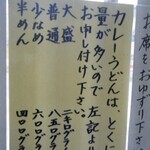 お席をおゆずり下さ
カレーうどんは、とくに
量が多いので左記より
お申し付け下さい。
大盛　二キログラ
普通　八五〇グラ
少なめ　六〇〇グラ
半めん　四〇〇グラ